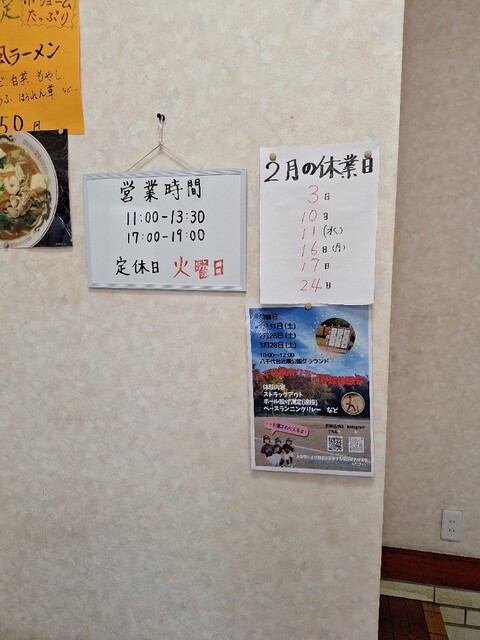 定
ボリューム
たっぷり
風ラーメン
白菜、もやし
ほうれん草 など…
50円
営業時間
11:00-13:30
17:00-19:00
定休日 火曜日
2月の休業日
3日
10日
11(水)
16日(月)
17日
24日
開催日
1月31日(土)
2月28日(土)
3月28日(土)
10:00〜12:00
八千代台近隣公園グラウンド
体験内容
ストラックアウト
ボール投げ測定(遠投)
ベースランニングリレー など